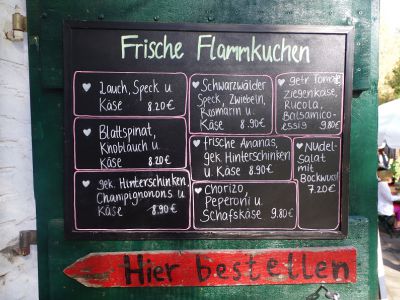 Frische Flammkuchen
Lauch, Speck u
Käse 8.20€
Blattspinat,
Knoblauch u
Käse 8.20€
gek. Hinterschinken
Champignonons u
Käse 8.90€
Schwarzwälder
Speck, Zwiebeln,
Rosmarin u
Käse 8.90€
frische Ananas,
gek Hinterschinken
u Käse 8.90€
Chorizo,
Peperoni u
Schafskäse 9.80€
getr Tomate,
Ziegenkäse,
Rucola,
Balsamico-
essig 9.80€
Nudel-
salat
mit
Bockwurst
7.20€
Hier bestellen